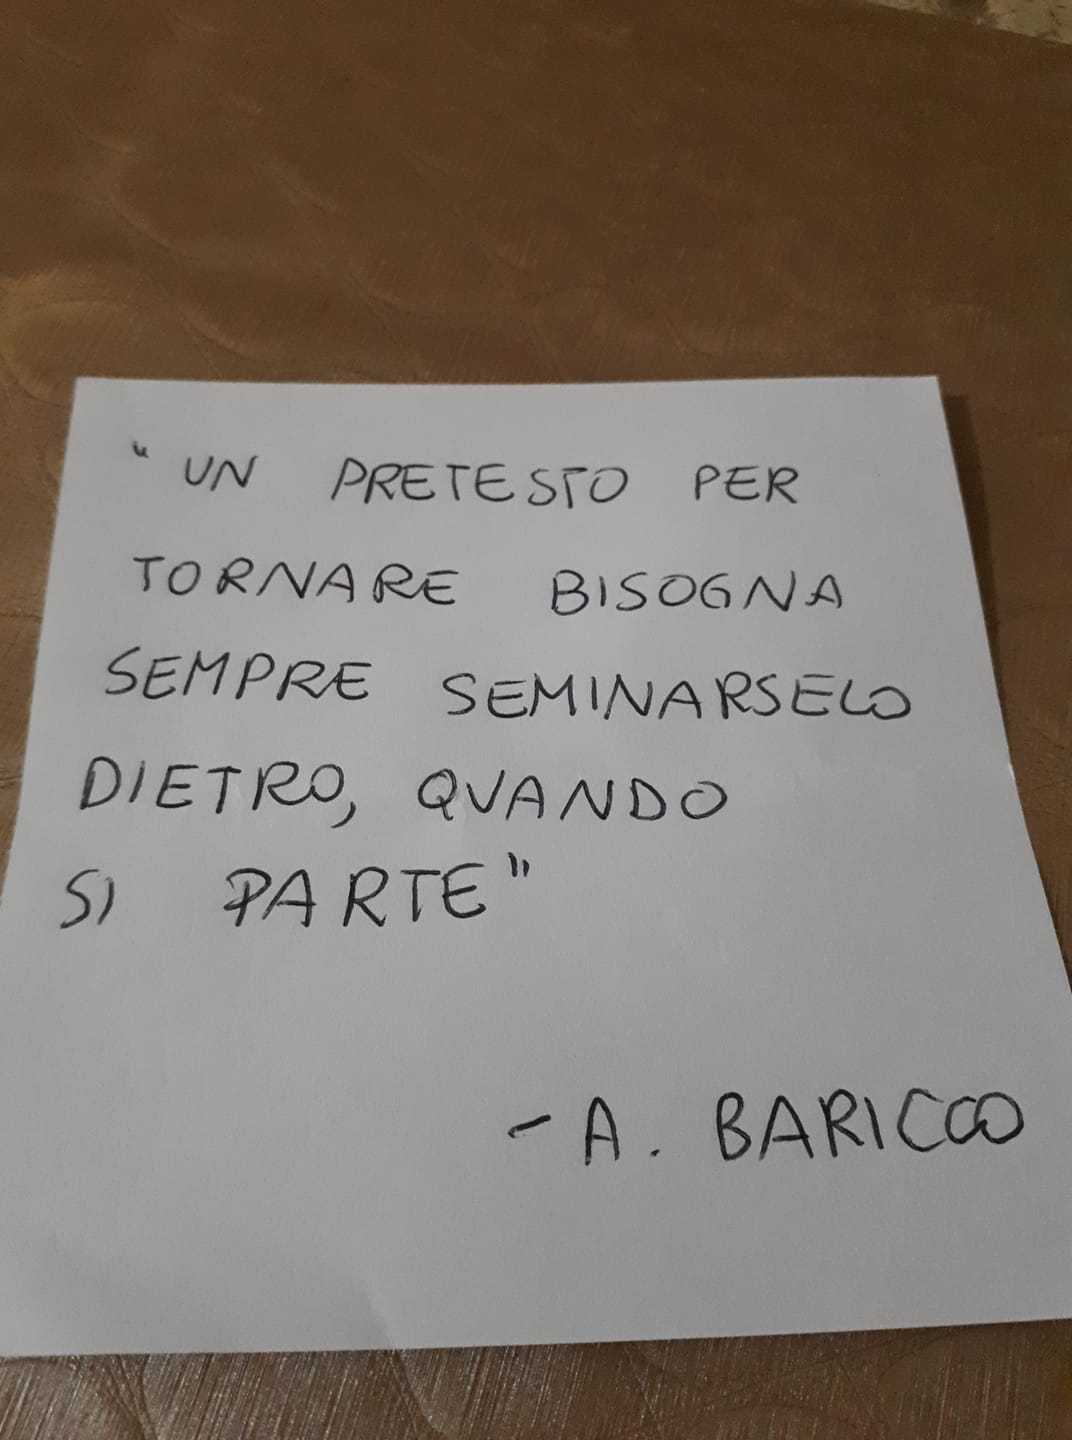 "UN PRETESTO PER
TORNARE BISOGNA
SEMPRE SEMINARSELO
DIETRO, QUANDO
SI PARTE"
- A. BARICCO